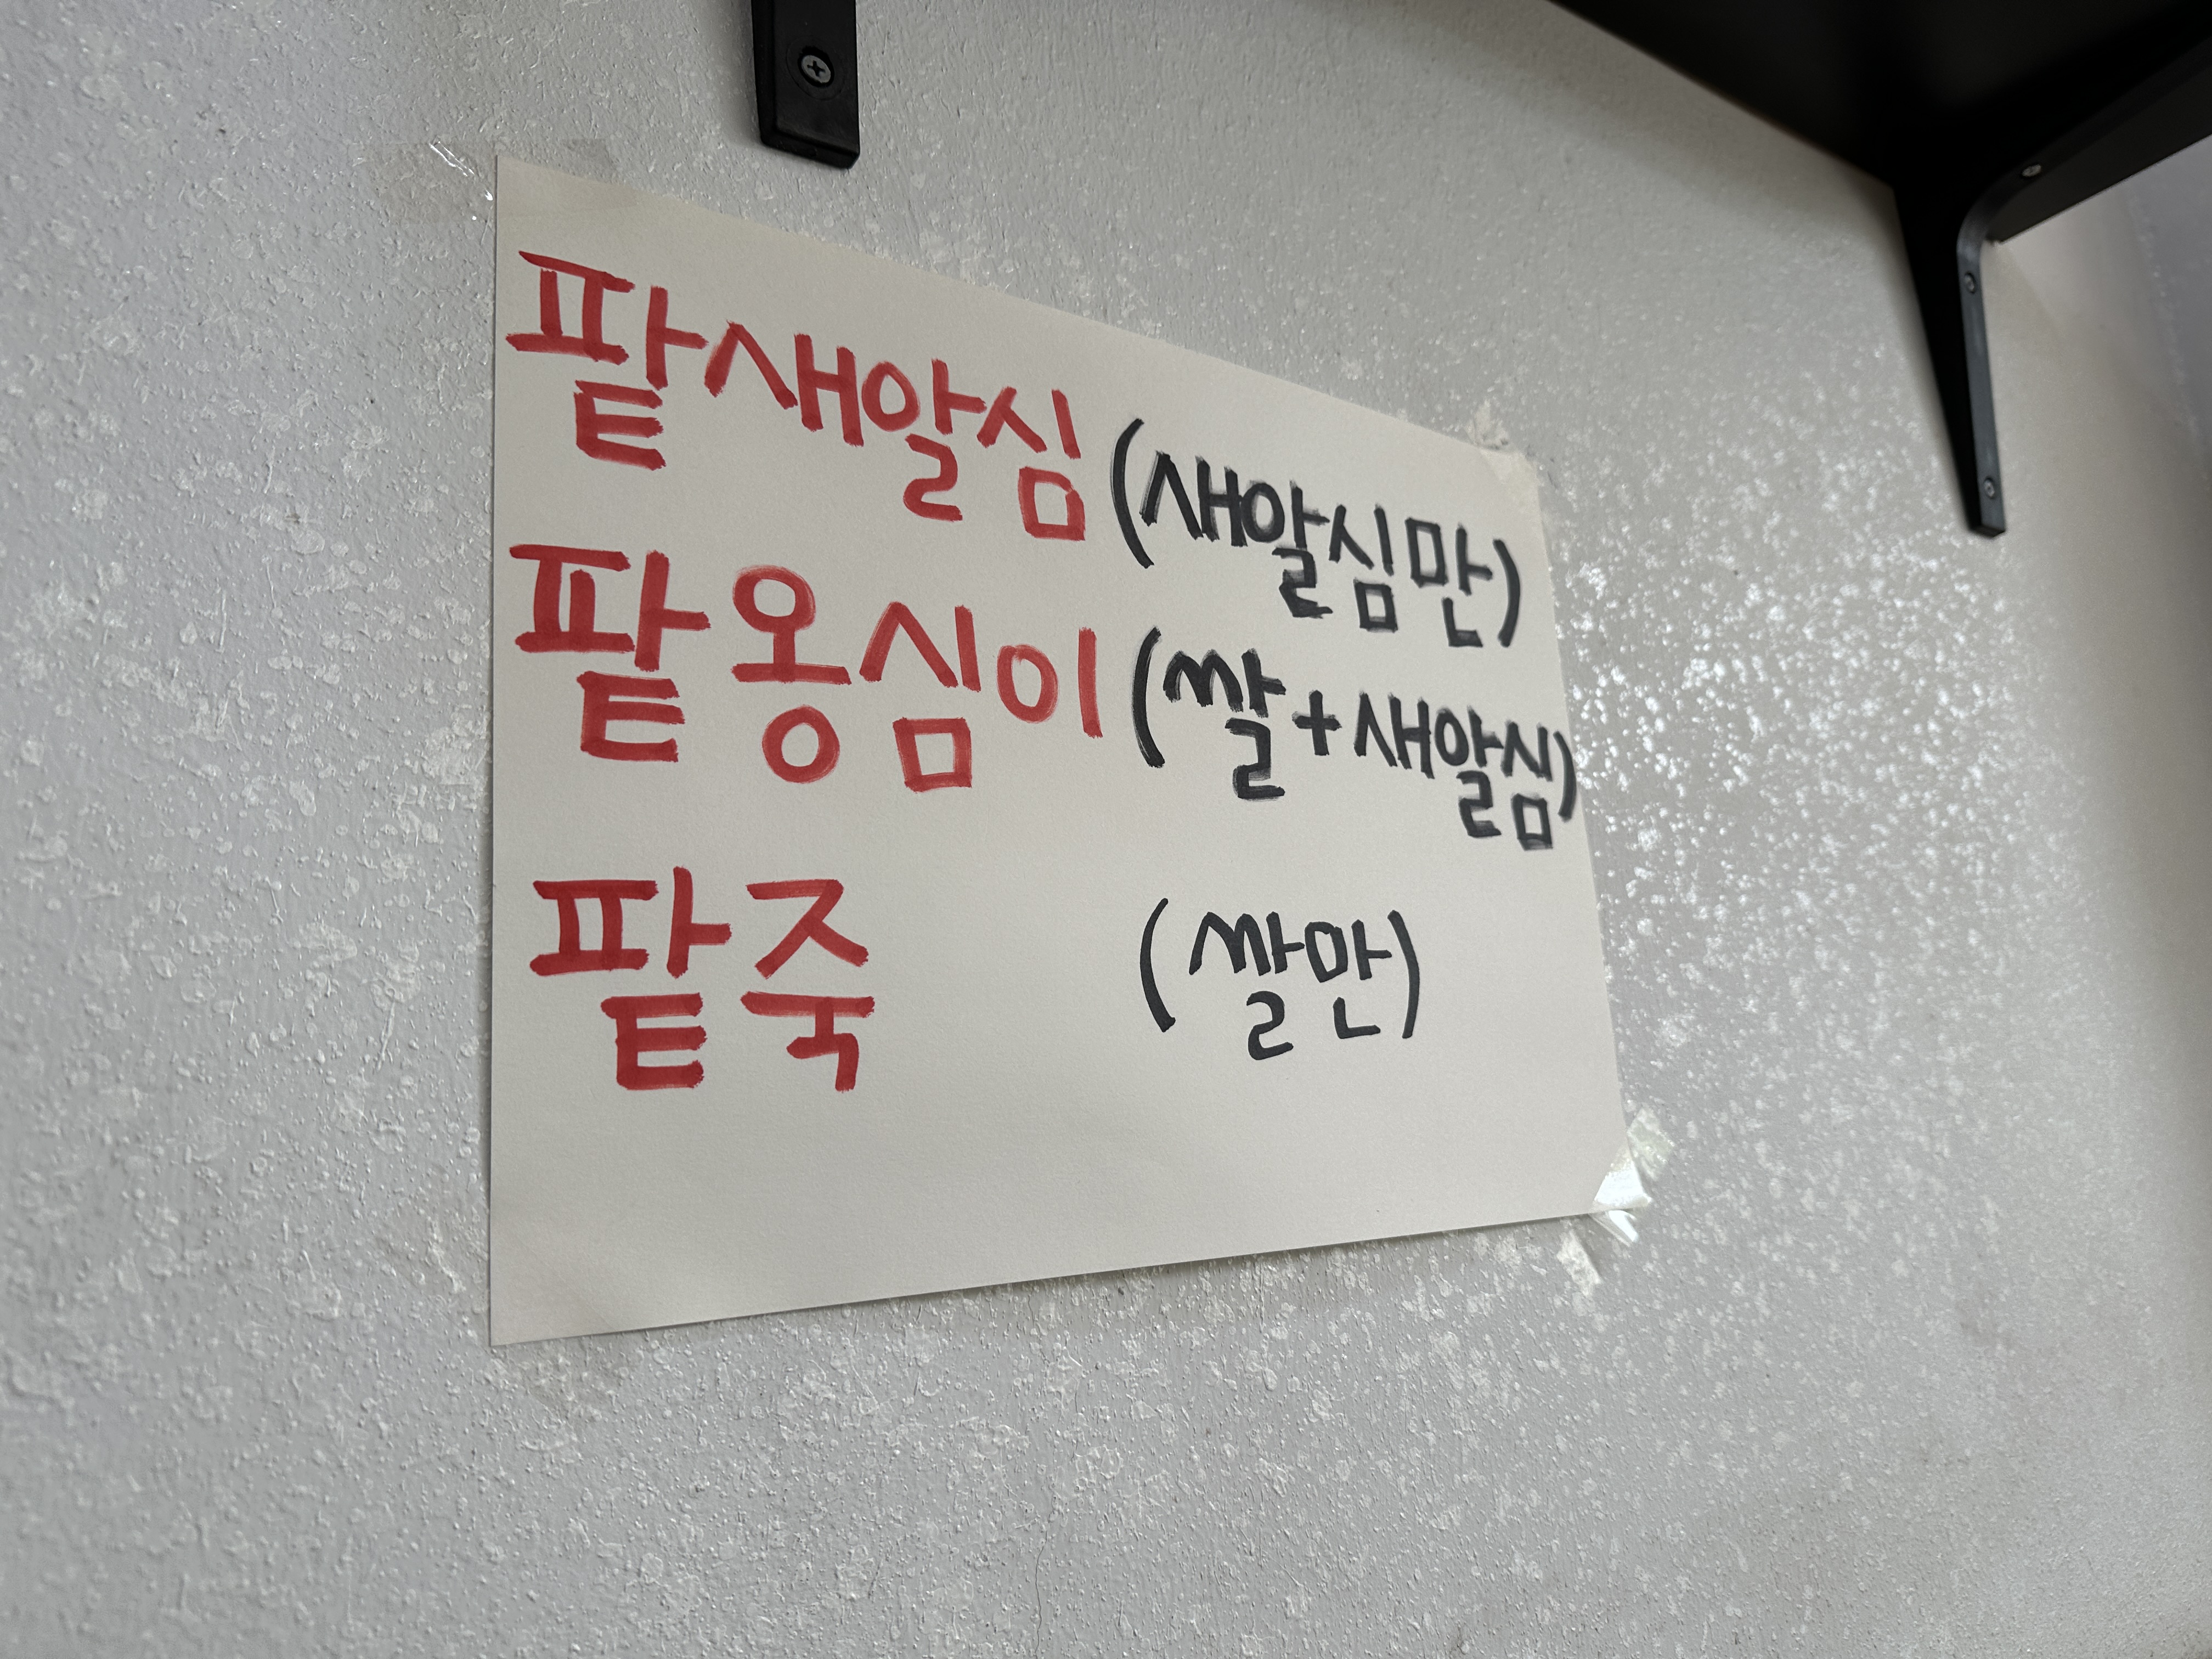 팥새알심 (새알심만)
팥옹심이 (쌀+새알심)
팥죽 (쌀만)